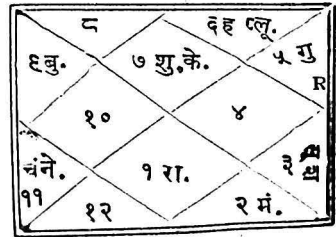 ८ ६ह प्लू.
९बु. ७ शु,के. ५ गु
R
१० ४
चंने. १ रा. ३
११ १२ २ मं.